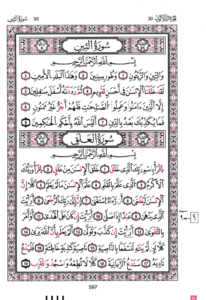 سورة التين 95
30 الجزء الثلاثون
سُورَةُ التِّينِ
بِسْمِ اللَّهِ الرَّحْمَٰنِ الرَّحِيمِ
وَالتِّينِ وَالزَّيْتُونِ ١ وَطُورِ سِينِينَ ٢ وَهَٰذَا الْبَلَدِ الْأَمِينِ ٣
لَقَدْ خَلَقْنَا الْإِنسَٰنَ فِي أَحْسَنِ تَقْوِيمٍ ٤ ثُمَّ رَدَدْنَٰهُ أَسْفَلَ سَٰفِلِينَ ٥
إِلَّا الَّذِينَ ءَامَنُوا وَعَمِلُوا الصَّٰلِحَٰتِ فَلَهُمْ أَجْرٌ غَيْرُ مَمْنُونٍ ٦
فَمَا يُكَذِّبُكَ بَعْدُ بِالدِّينِ ٧ أَلَيْسَ اللَّهُ بِأَحْكَمِ الْحَٰكِمِينَ ٨
سُورَةُ العَلَقِ
بِسْمِ اللَّهِ الرَّحْمَٰنِ الرَّحِيمِ
اقْرَأْ بِاسْمِ رَبِّكَ الَّذِي خَلَقَ ١ خَلَقَ الْإِنسَٰنَ مِنْ عَلَقٍ ٢ اقْرَأْ وَرَبُّكَ
الْأَكْرَمُ ٣ الَّذِي عَلَّمَ بِالْقَلَمِ ٤ عَلَّمَ الْإِنسَٰنَ مَا لَمْ يَعْلَمْ ٥ كَلَّا إِنَّ
الْإِنسَٰنَ لَيَطْغَىٰ ٦ أَن رَّءَاهُ اسْتَغْنَىٰ ٧ إِنَّ إِلَىٰ رَبِّكَ الرُّجْعَىٰ ٨ أَرَءَيْتَ
الَّذِي يَنْهَىٰ ٩ عَبْدًا إِذَا صَلَّىٰ ١٠ أَرَءَيْتَ إِن كَانَ عَلَى الْهُدَىٰ ١١ أَوْ أَمَرَ
بِالتَّقْوَىٰ ١٢ أَرَءَيْتَ إِن كَذَّبَ وَتَوَلَّىٰ ١٣ أَلَمْ يَعْلَم بِأَنَّ اللَّهَ يَرَىٰ ١٤
كَلَّا لَئِن لَّمْ يَنتَهِ لَنَسْفَعًا بِالنَّاصِيَةِ ١٥ نَاصِيَةٍ كَٰذِبَةٍ خَاطِئَةٍ ١٦ فَلْيَدْعُ
نَادِيَهُ ١٧ سَنَدْعُ الزَّبَانِيَةَ ١٨ كَلَّا لَا تُطِعْهُ وَاسْجُدْ وَاقْتَرِب ١٩
597